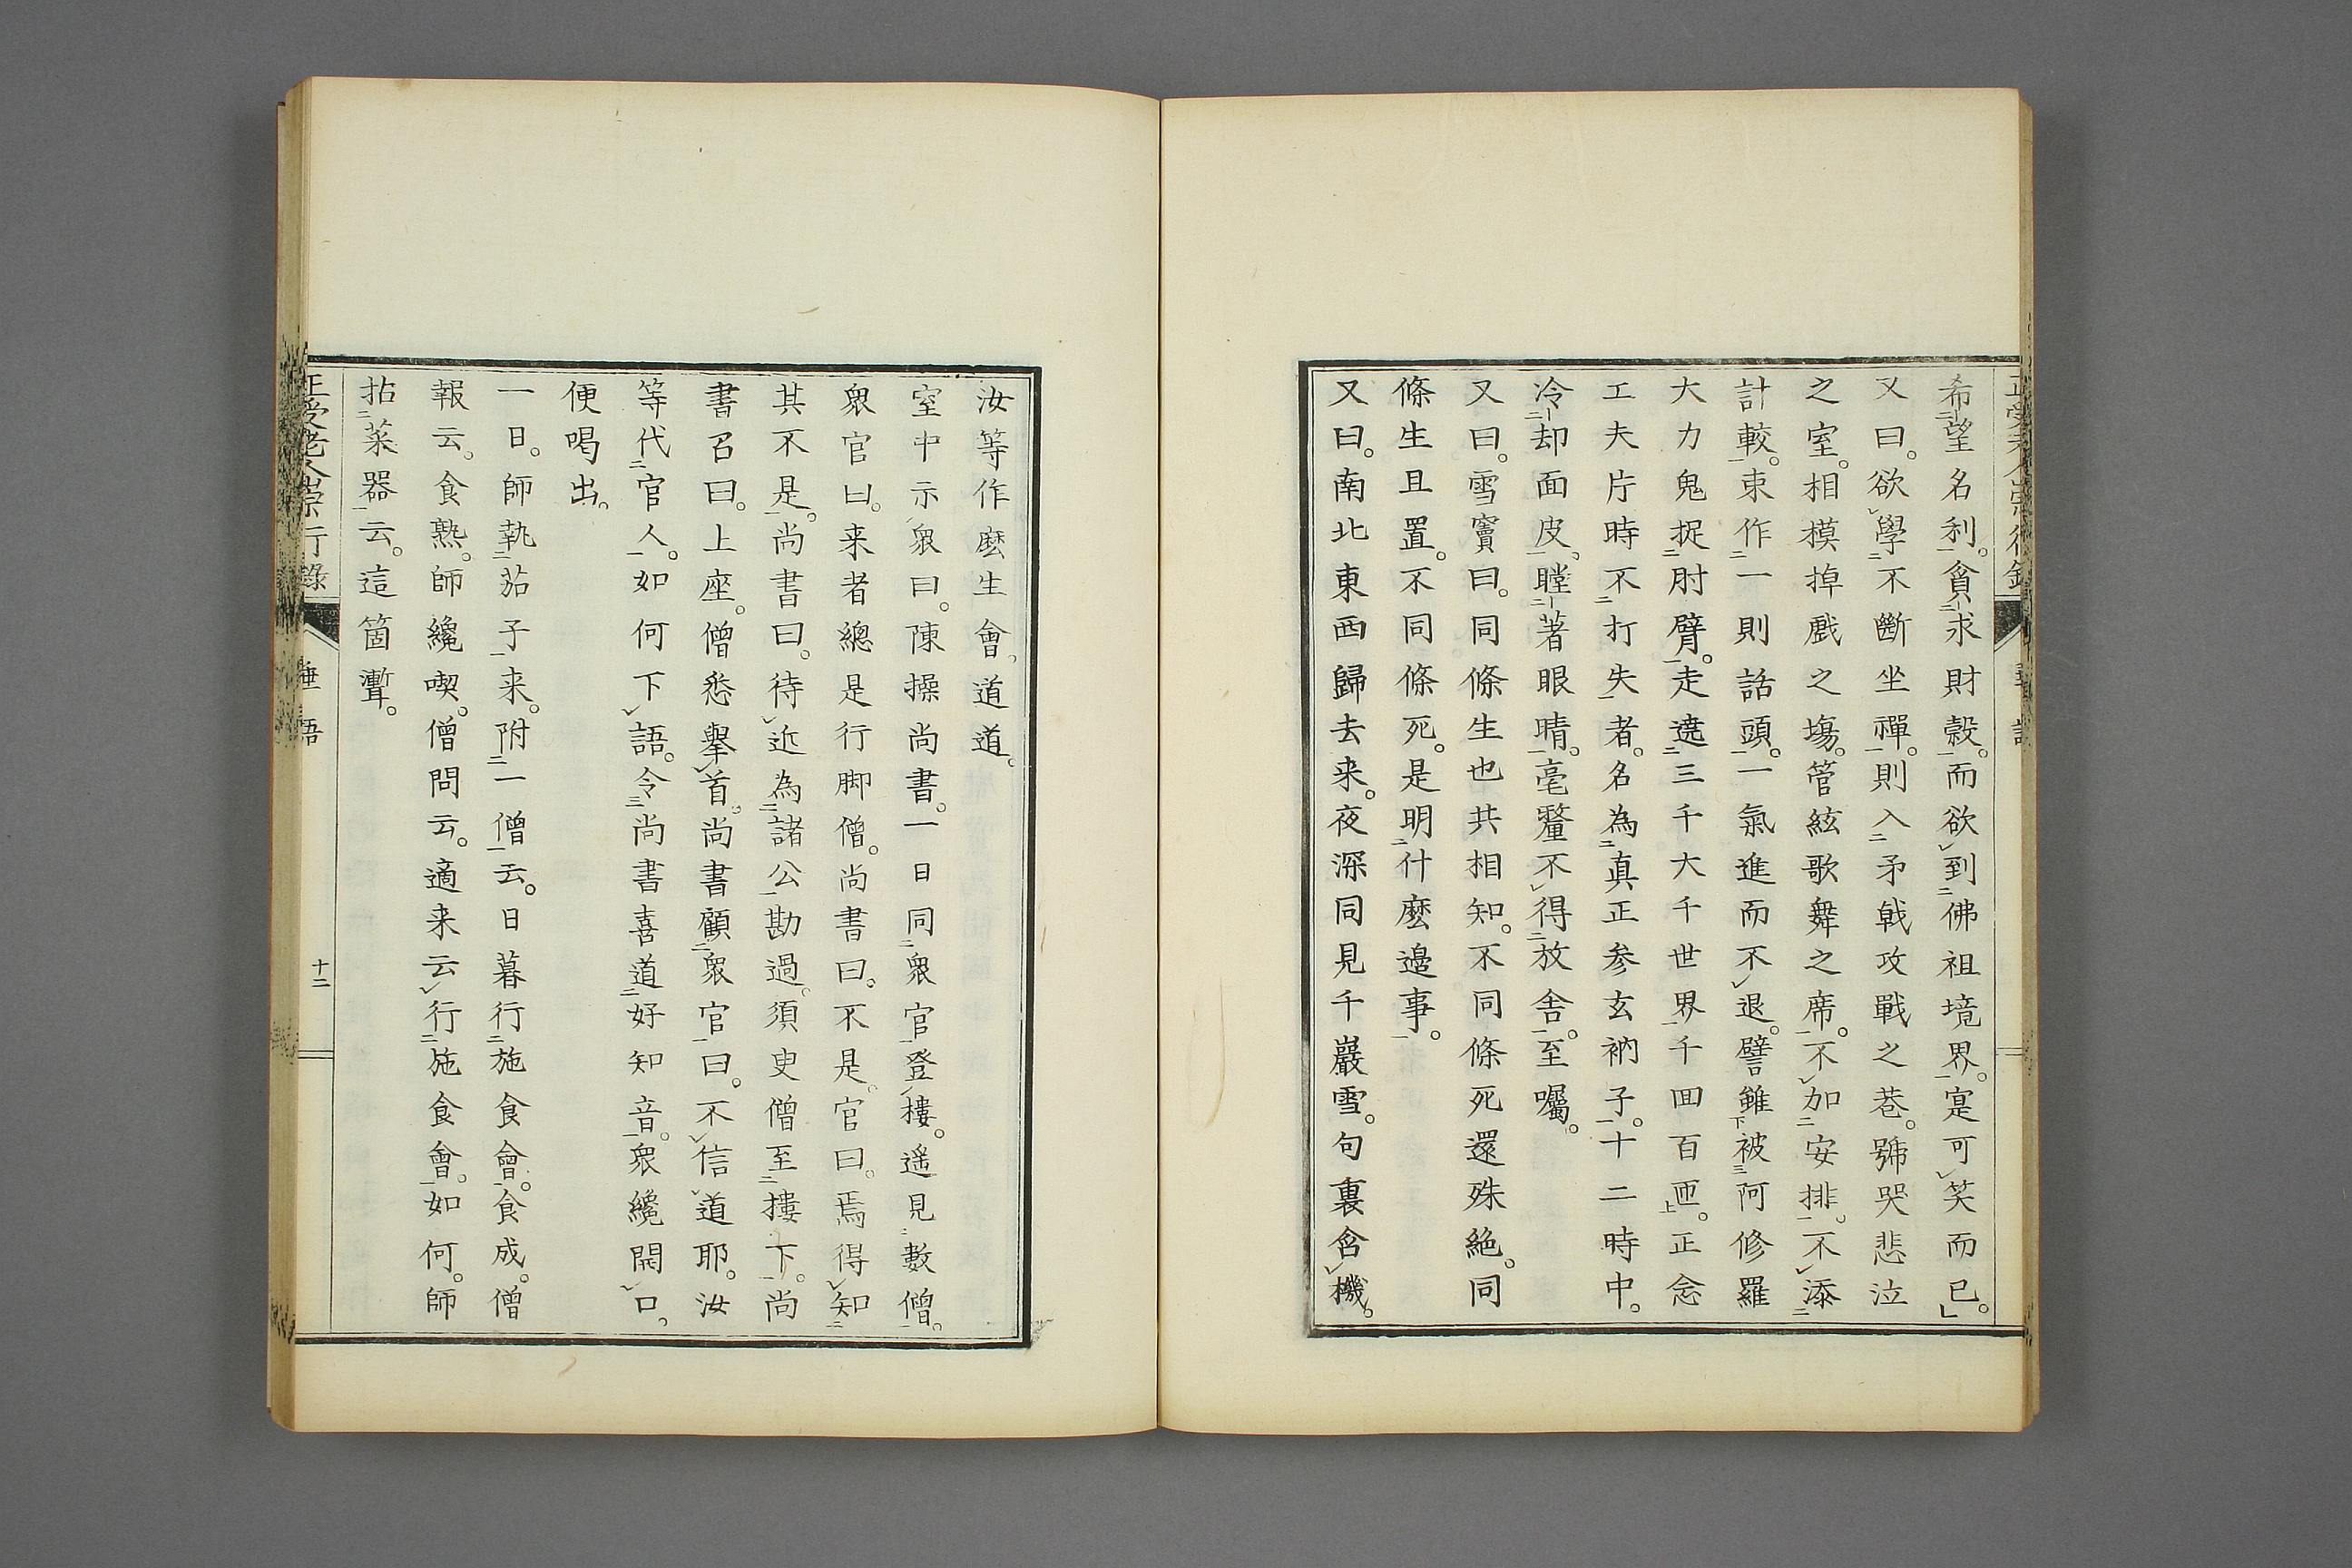 希望名利。貪求財穀。而欲到佛祖境界。寔可笑而已。
又曰。欲學不斷坐禪。則入矛戟攻戰之巷。號哭悲泣
之室。相模掉戲之塲。管絃歌舞之席。不加安排。不添
計較。束作一則話頭。一氣進而不退。譬雖被阿修羅
大力鬼捉肘臂。走遶三千大千世界千回百匝。正念
工夫片時不打失者。名為真正参玄衲子。十二時中。
冷却面皮。瞠著眼睛。毫釐不得放舍。至囑。
又曰。雪竇曰。同條生也共相知。不同條死還殊絶。同
條生且置。不同條死。是明什麼邊事。
又曰。南北東西歸去来。夜深同見千巖雪。句裏含機。
汝等作麼生會。道道。
室中示衆曰。陳操尚書。一日同衆官登樓。遥見數僧。
衆官曰。来者總是行脚僧。尚書曰。不是。官曰。焉得知
其不是。尚書曰。待近為諸公勘過。須臾僧至樓下。尚
書召曰。上座。僧悉擧首。尚書顧衆官曰。不信道耶。汝
等代官人。如何下語。令尚書喜道好知音。衆纔開口。
便喝出。
一日。師執茄子来。附一僧云。日暮行施食會。食成。僧
報云。食熟。師纔喫。僧問云。適来云行施食會。如何。師
拈菜器云。這箇聻。
正受老人崇行録
垂語
十二